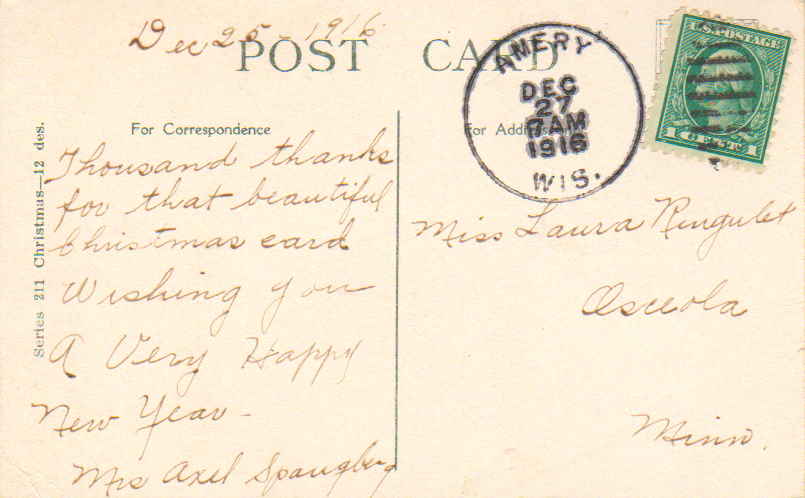 Dec 25 - 1916
POST CARD
AMERY
DEC
27
7 AM
1916
WIS.
U.S. POSTAGE
1 CENT 1
For Correspondence
For Address
Series 211 Christmas—12 des.
Thousand thanks
for that beautiful
Christmas card
Wishing you
A Very Happy
New Year -
Mrs Axel Spangberg
Miss Laura Ringulet
Osceola
Minn.